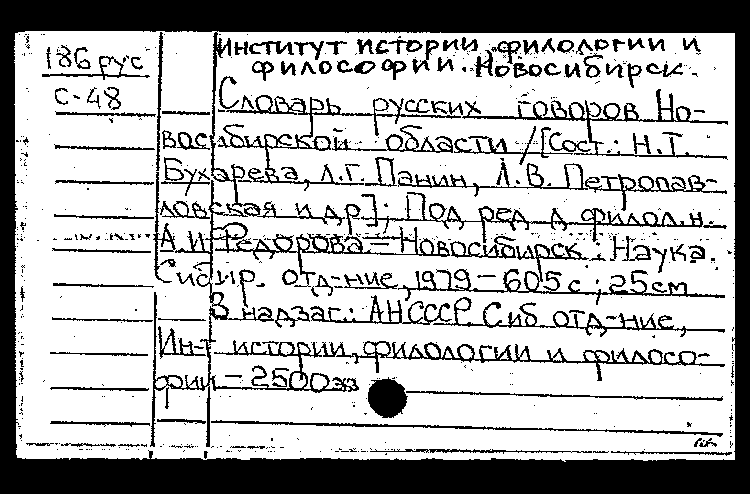 Институт истории, филологии и
философии. Новосибирск.
186 рус
С-48
Словарь русских говоров Но-
восибирской области / [Сост.: Н.Т.
Бухарева, А.Г. Панин, Л.В. Петропав-
ловская и др.]; Под ред д. филол. н.
А.И. Федорова. - Новосибирск: Наука.
Сибир. отд-ние, 1979 - 605 с; 25 см
В надзаг.: АН СССР. Сиб отд-ние,
Ин-т истории, филологии и филосо-
фии - 2500 экз